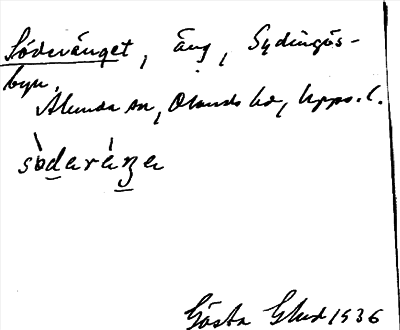 Söderänget, äng, Sydingös-
byn.
Alunda sn, Olands hd, Upps. l.
sòderáŋa
Gösta Glud 1936